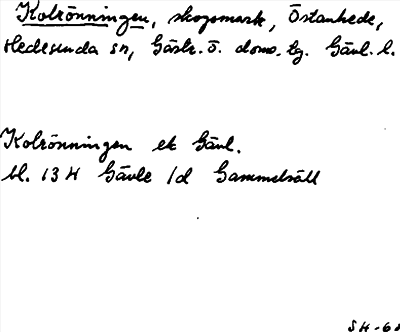 Kolrönningen, skogsmark, Östanhede,
Hedesunda sn, Gästr. ö. doms. tg. Gävl. l.
Kolrönningen ek Gävl.
bl. 13 H Gävle 1d Gammelsäll
SH-68